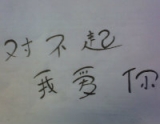 对不起
我爱你